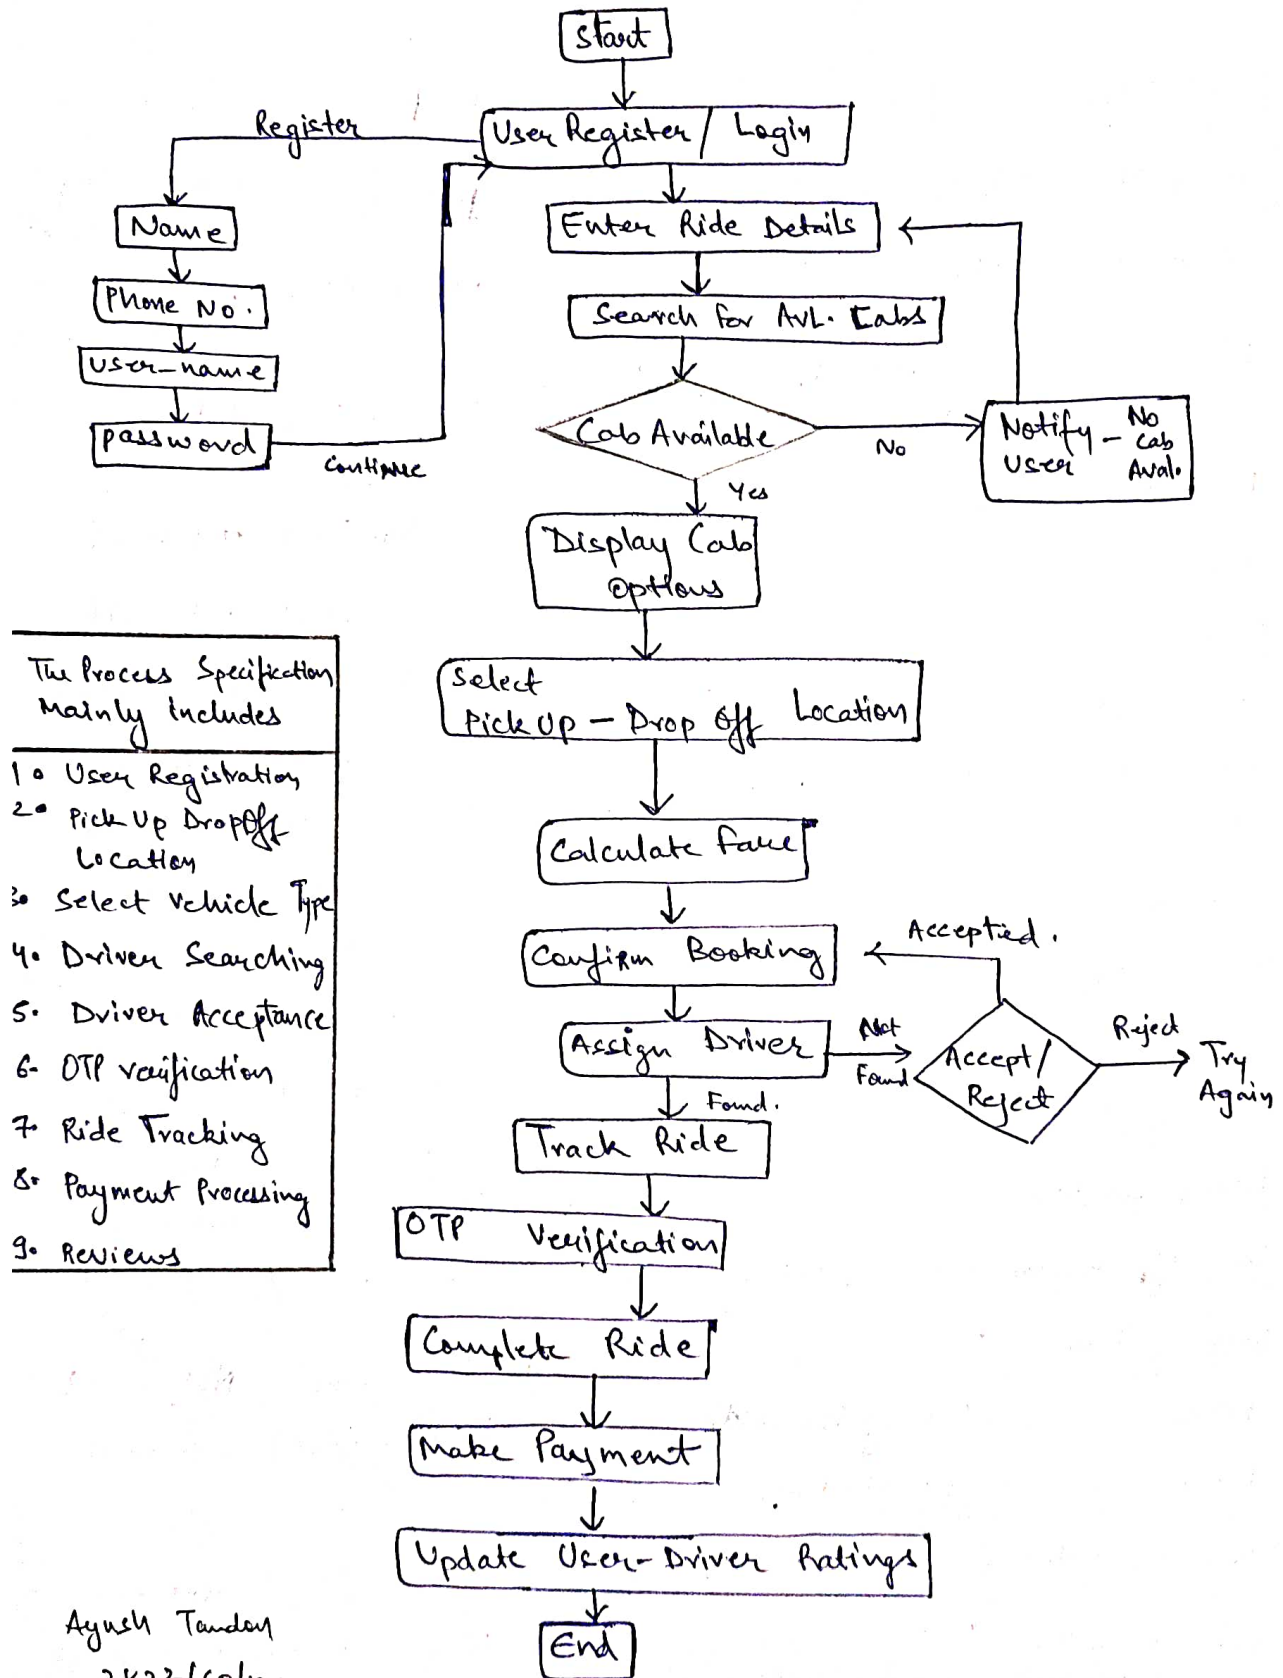 Start
User Register / Login
Register
Name
Phone No.
User-name
password
continue
Enter Ride Details
Search for Avl. Cabs
Cab Available
No
Notify User - No Cab Aval.
Yes
Display Cab
options
Select
Pick Up - Drop Off Location
Calculate Fare
Confirm Booking
Acceptied.
Assign Driver
Not
Found
Accept /
Reject
Reject
Try
Again
Found.
Track Ride
OTP Verification
Complete Ride
Make Payment
Update User-Driver Ratings
End
The Process Specification
Mainly includes
1. User Registration
2. Pick Up DropOff
Location
3. Select vehicle Type
4. Driver Searching
5. Driver Acceptance
6- OTP verification
7. Ride Tracking
8. Payment Processing
9. Reviews
Ayush Tandon